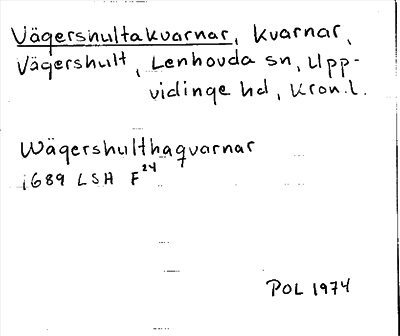 Vägershultakvarnar, kvarnar,
Vägershult, Lenhovda sn, Upp-
vidinge hd, Kron.l.
Wägershulthaqvarnar
1689 LSH F 24
POL 1974